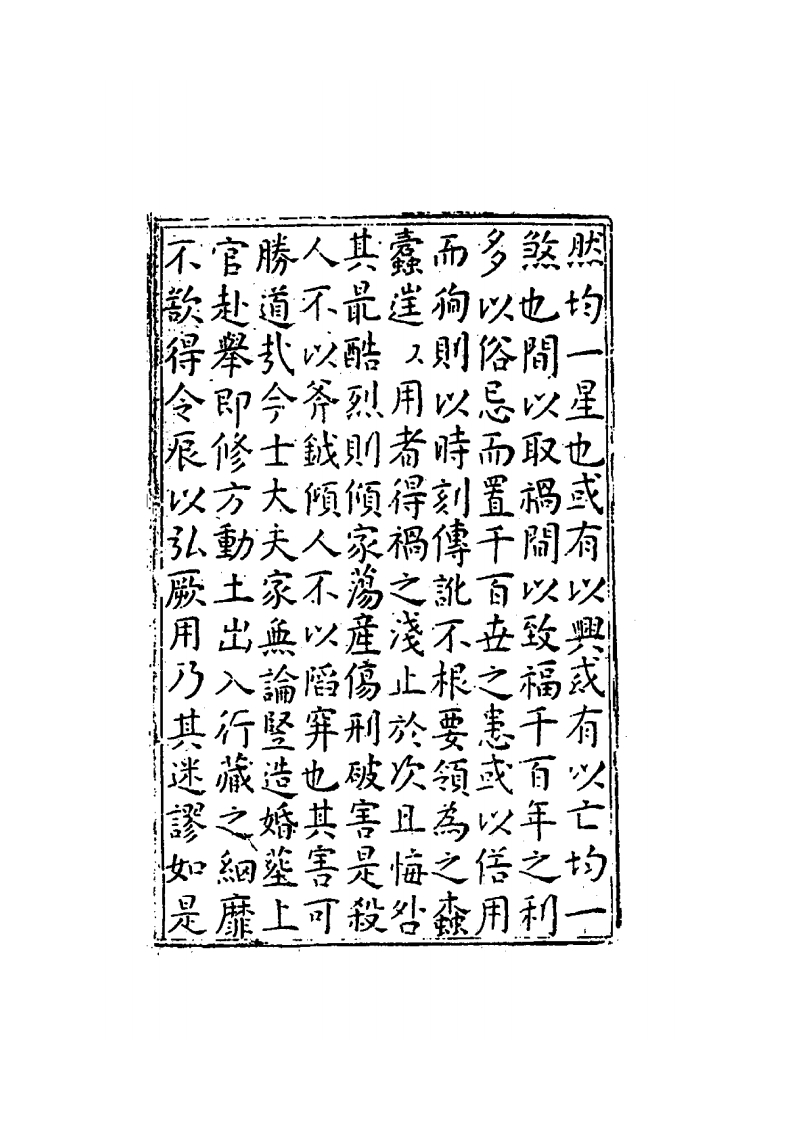 然均一星也或有以興或有以亡均一
煞也間以取禍間以致福千百年之利
多以俗忌而置千百世之恚或以偌用
而徇則以時刻傳訛不根要領為之螙
蠹逬〻用者得禍之淺止於次且悔咎
其最酷烈則傾家蕩產傷刑破害是殺
人不以斧鉞傾人不以陷穽也其害可
勝道哉今士大夫家無論竪造婚塟上
官赴舉即修方動土出入行藏之細靡
不歆得令辰以弘厥用乃其迷謬如是